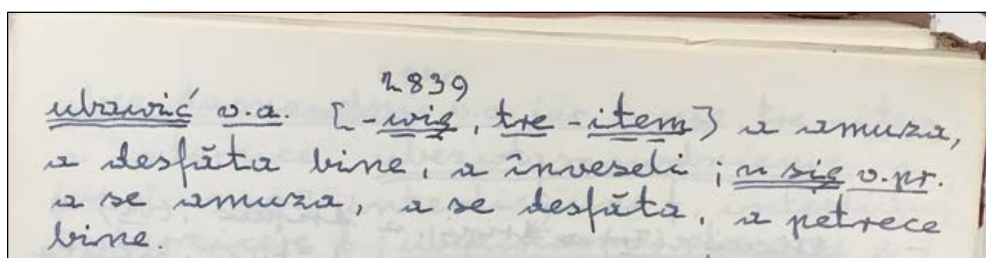 2839
ubawić v.a. [-wię, tre -item] a amuza,
a desfăta bine, a înveseli; u się v.pr.
a se amuza, a se desfăta, a petrece
bine.